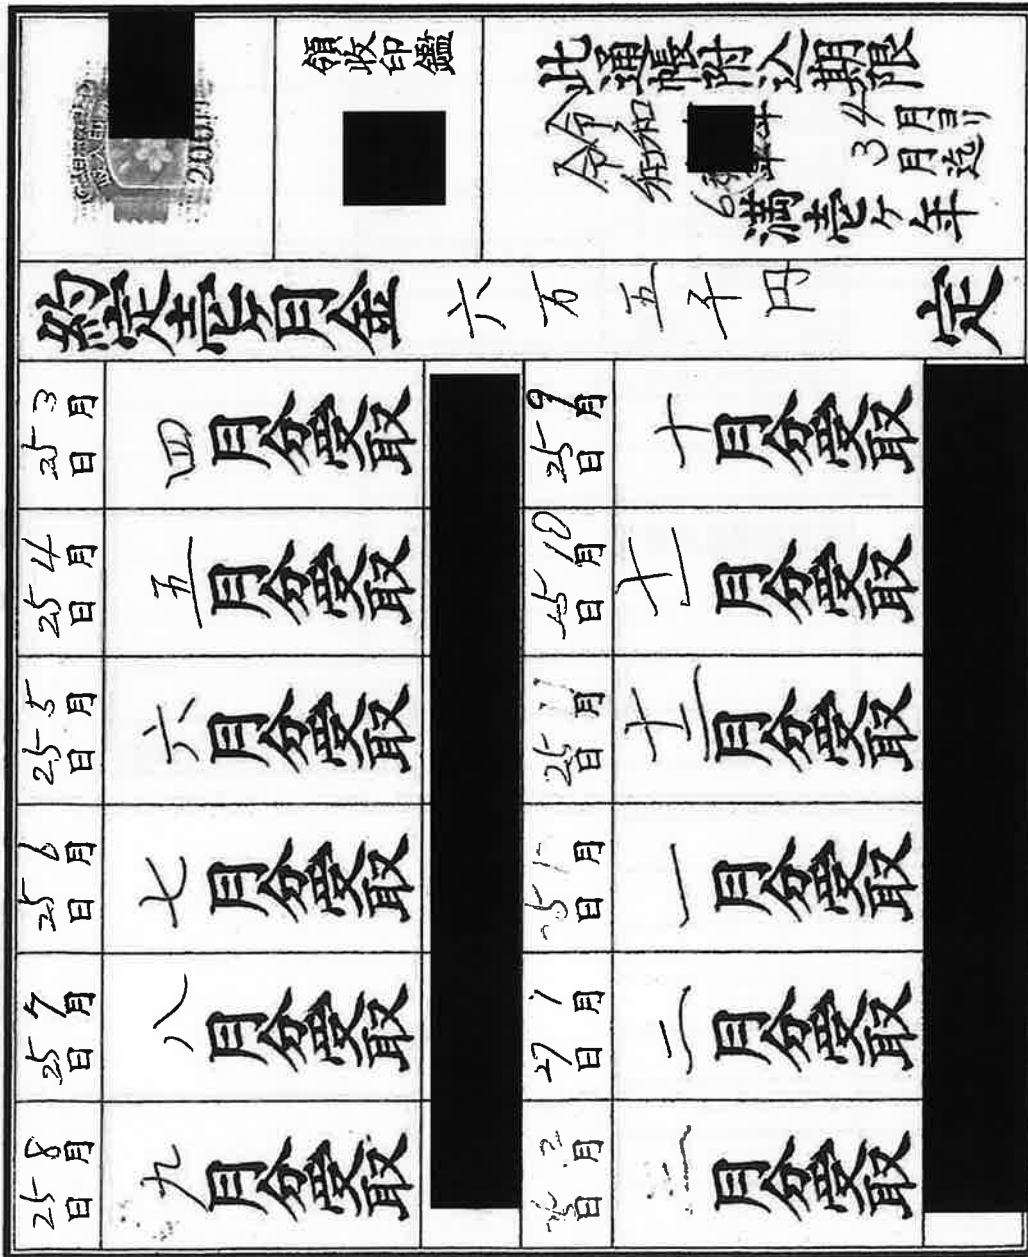 此通帳附込期限
令和 年 4月ヨリ
令和6年 3月迄
満壱ヶ年
領收印鑑
200円
約定壱ヶ月金 六万五千円 定
3月25日 四月分受取
4月25日 五月分受取
5月25日 六月分受取
6月25日 七月分受取
7月25日 八月分受取
8月25日 九月分受取
9月25日 十月分受取
10月25日 十一月分受取
11月25日 十二月分受取
月25日 一月分受取
1月27日 二月分受取
2月 日 三月分受取